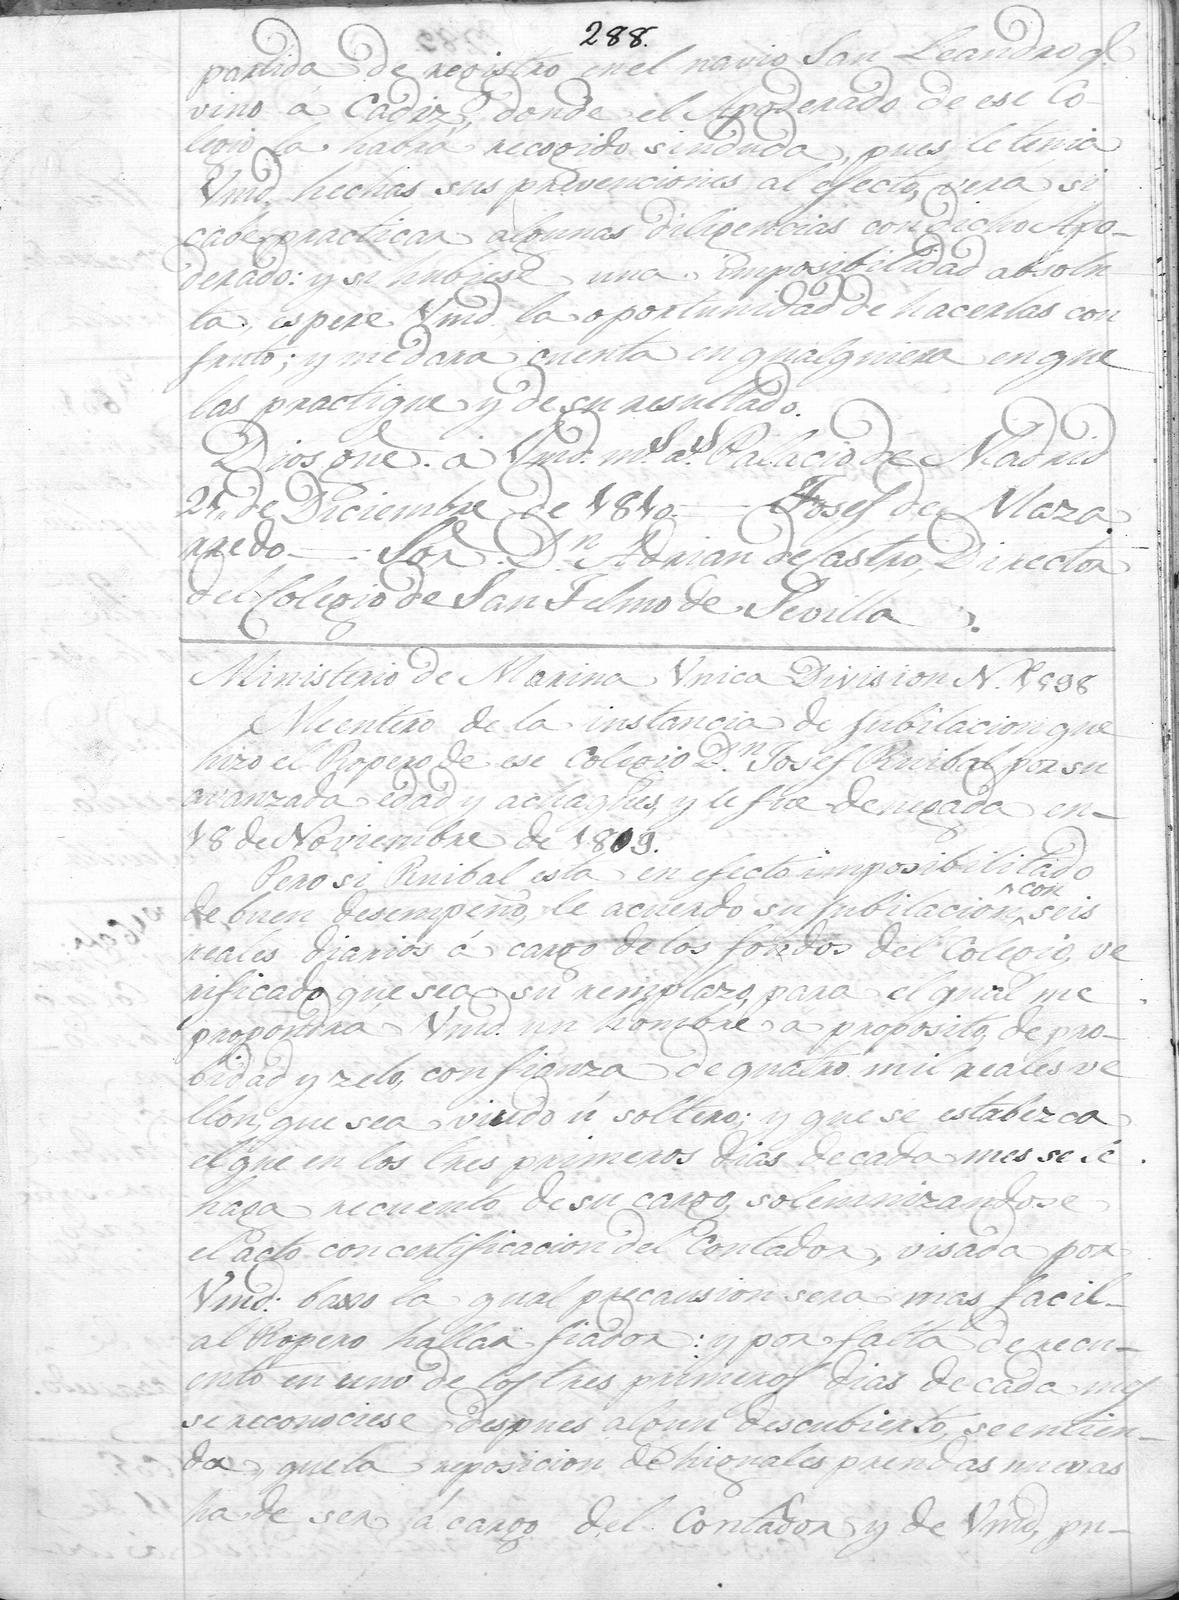 288.
partida de registro en el navio San Leandro q.e
vino á Cadiz, donde el Apoderado de ese Co-
legio la habrá recogido sinduda, pues le tenia
Vmd. hechas sus prevenciones al efecto, vera si
cabe practicar algunas diligencias con dicho Apo-
derado: y si hubiese una imposibilidad absolu-
ta, espere Vmd. la oportunidad de hacerlas con
fruto; y me dara cuenta en qualquiera en que
las practique y de su resultado.
Dios gue. a Vmd. m.s a.s Palacio de Madrid
21, de Diciembre de 1810. Josef de Maza
rredo. Sor. D.n Adrian de Castro, Director
del Colegio de San Telmo de Sevilla
Ministerio de Marina Vnica Division N. 1998
Me entero de la instancia de Jubilacion que
hizo el Ropero de ese Colegio D.n Josef Rnibal por su
avanzada edad y achaques, y le fue denegada en-
18 de Noviembre de 1809.
Pero si Rnibal esta en efecto imposibilitado
con
de buen desempeño, le acuerdo su Jubilacion seis
reales diarios á cargo de los fondos del Colegio, ve
rificado que sea su remplazo, para el qual me
propondrá Vmd. un hombre a proposito, de pro-
bidad y zelo, con fianza de quatro mil reales ve
llon, que sea viudo ú soltero; y que se estabezca
el que en los tres primeros dias de cada mes se le
haga recuento de su cargo, solemnizandose
el acto con certificacion del Contador, visada por
Vmd: baxo la qual precausion sera mas facil-
al Ropero hallar fiador: y por falta de recu-
ento en uno de los tres primeros dias de cada mes
se reconociese despues algun descubierto, se entien-
da, que la reposicion de higuales prendas nuevas
ha de ser á cargo del Contador y de Vmd, pu-